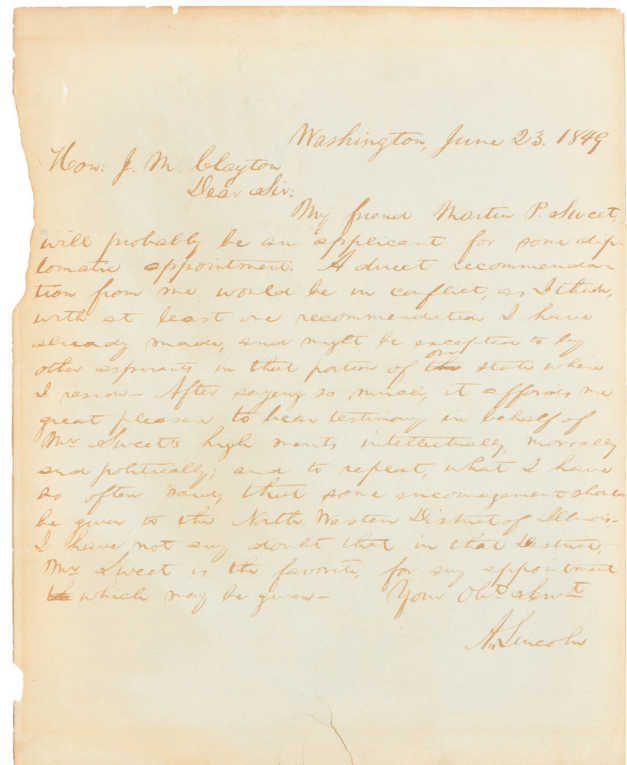 Washington, June 23. 1849
Hon: J. M. Clayton
Dear Sir:
My friend Martin P. Sweet,
will probably be an applicant for some dip-
lomatic appointment. A direct recommenda-
tion from me would be in conflict, as I think,
with at least one recommendation I have
already made, and might be excepted to by
other aspirants in that portion of our state where
I reside— After saying so much, it affords me
great pleasure to bear testimony in behalf of
Mr Sweet's high merits intellectually, morally
and politically; and to repeat, what I have
so often said, that some encouragement should
be given to the North Western District of Illinois—
I have not any doubt that in that District,
Mr Sweet is the favorite, for any appointment
which may be given— Your Obt Servt
A. Lincoln